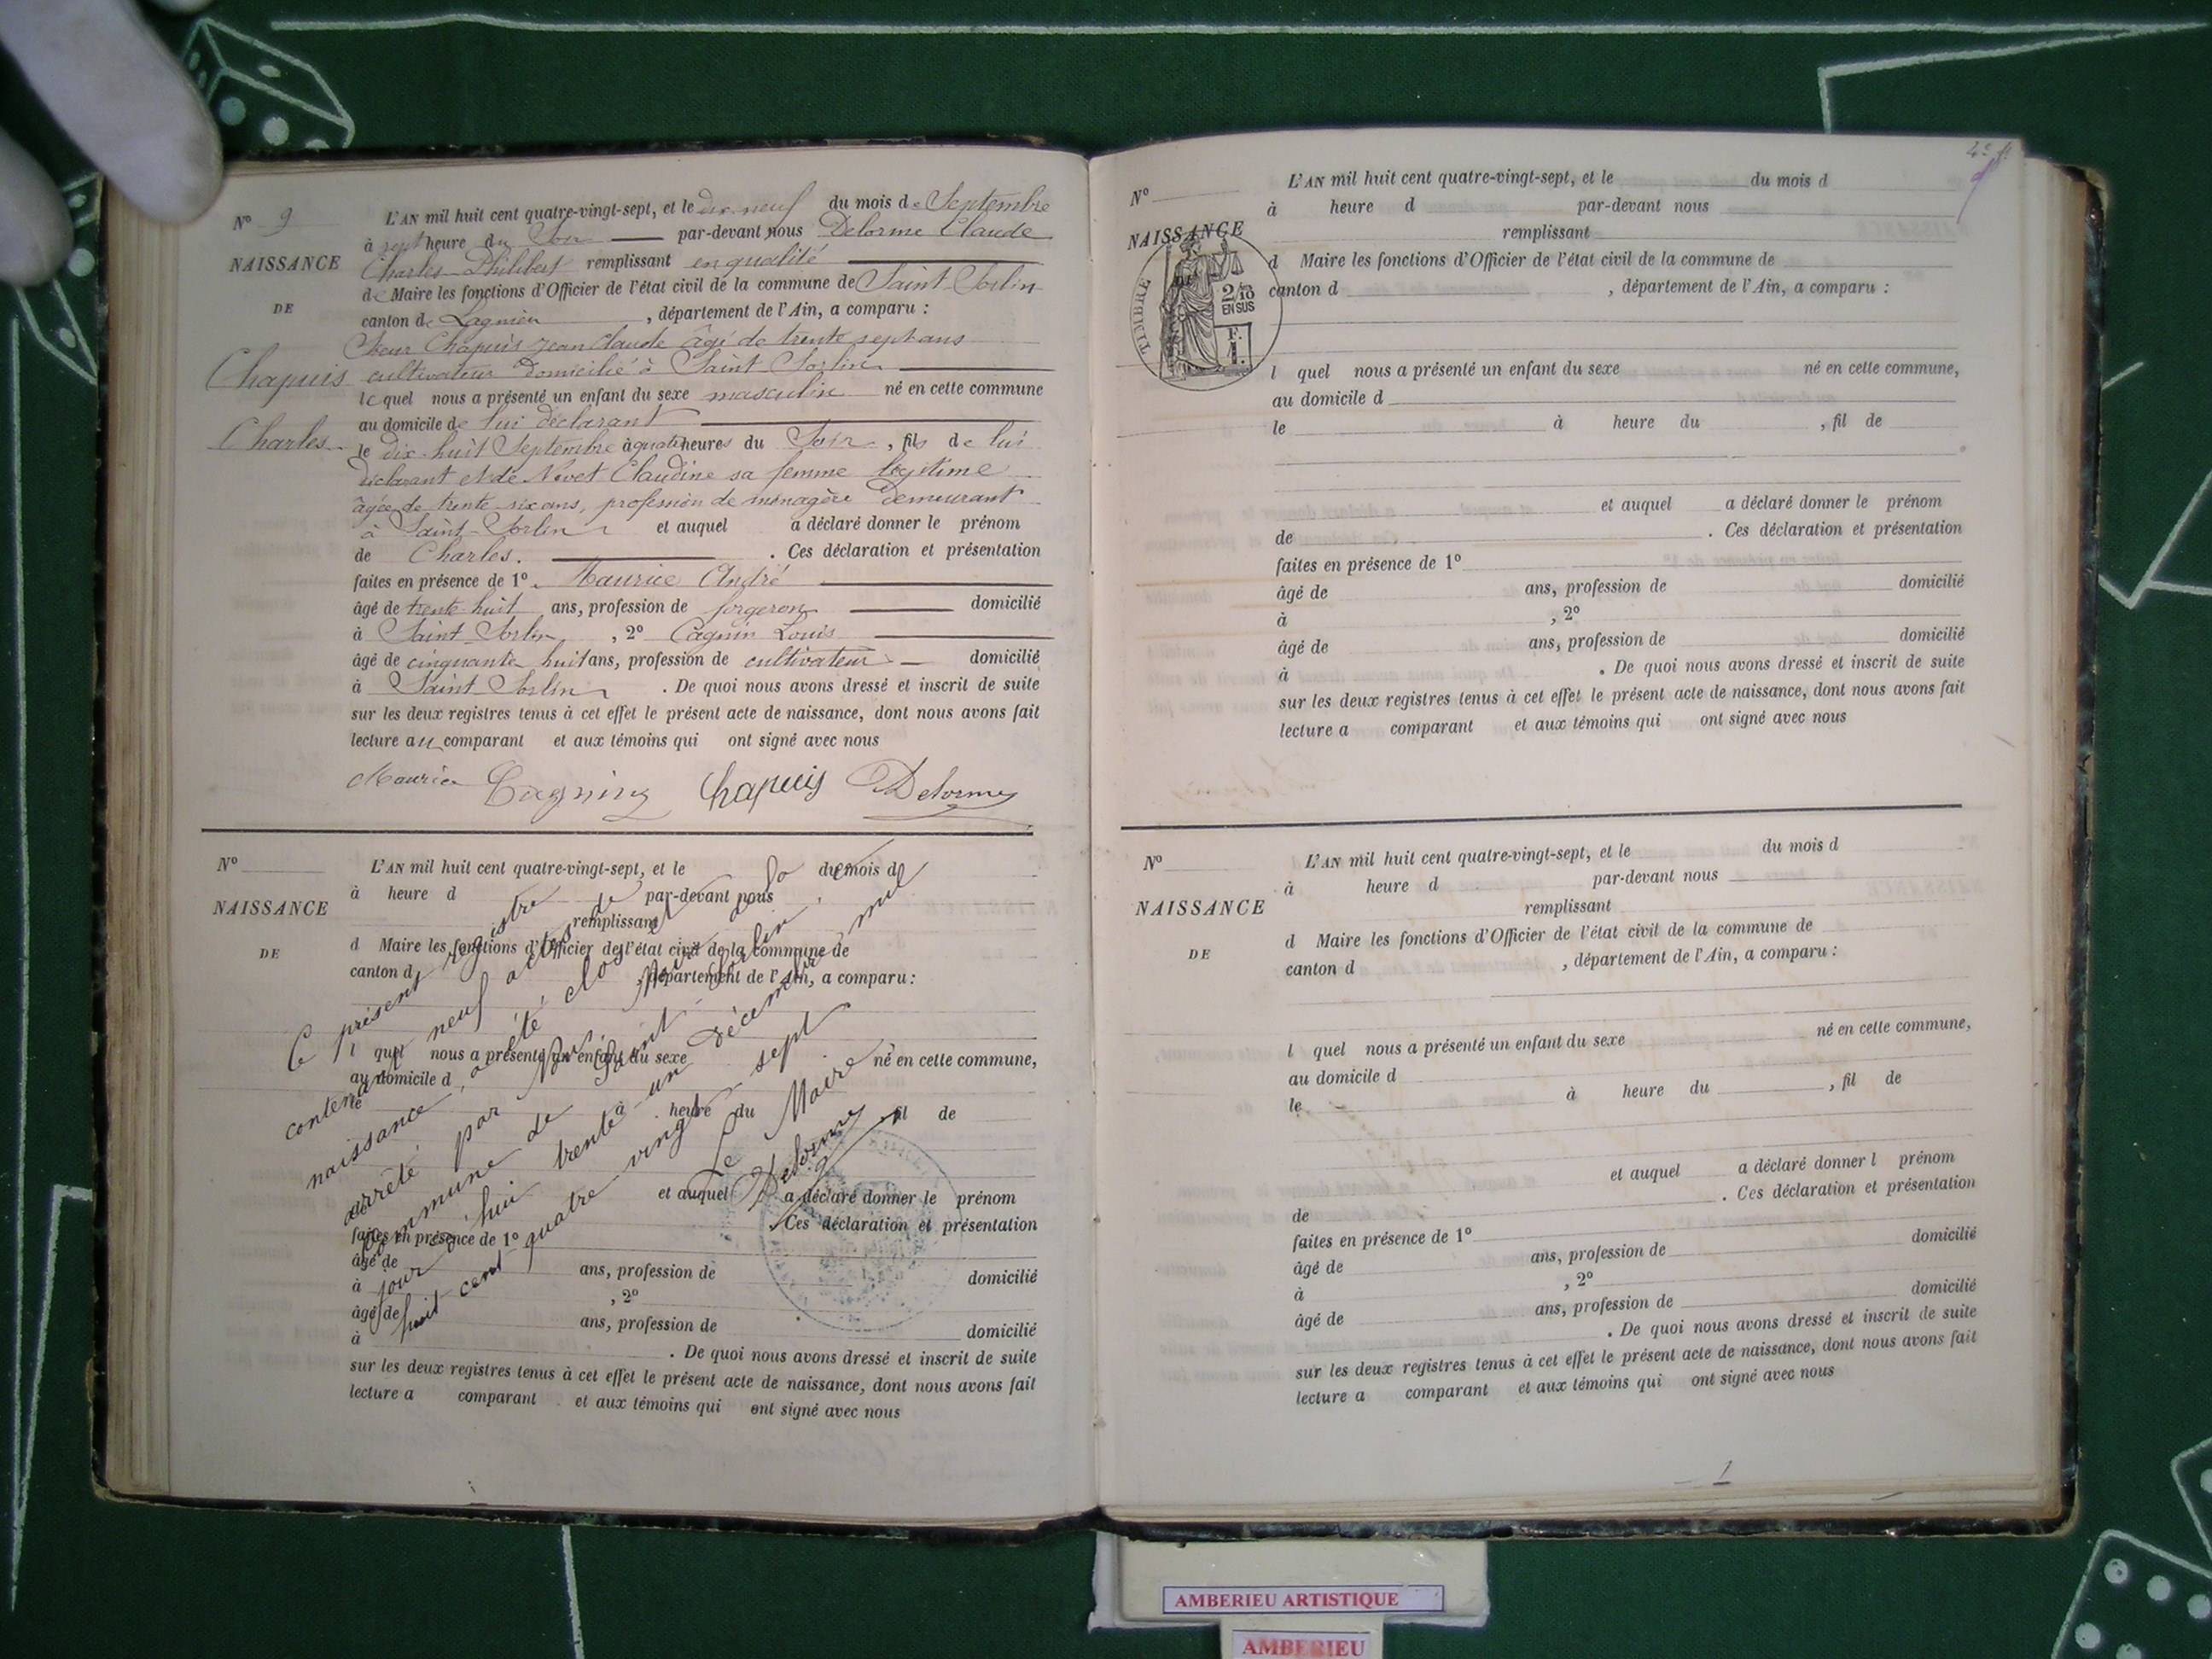 N° 9
NAISSANCE
DE
Chapuis
Charles
L'AN mil huit cent quatre-vingt-sept, et le dix neuf du mois de Septembre
à sept heure du Soir par-devant nous Delorme Claude
Charles Philibert remplissant en qualité
de Maire les fonctions d'Officier de l'état civil de la commune de Saint Sorlin
canton de Lagnieu, département de l'Ain, a comparu :
Sieur Chapuis Jean Claude âgé de trente sept ans
cultivateur domicilié à Saint Sorlin
lequel nous a présenté un enfant du sexe masculin né en cette commune
au domicile de lui déclarant
le dix huit Septembre à quatre heures du Soir, fils de lui
déclarant et de Nivet Claudine sa femme légitime
âgée de trente six ans, profession de ménagère demeurant
à Saint Sorlin et auquel a déclaré donner le prénom
de Charles. . Ces déclaration et présentation
faites en présence de 1° Maurice André
âgé de trente huit ans, profession de forgeron domicilié
à Saint Sorlin, 2° Cagnin Louis
âgé de cinquante huit ans, profession de cultivateur domicilié
à Saint Sorlin. De quoi nous avons dressé et inscrit de suite
sur les deux registres tenus à cet effet le présent acte de naissance, dont nous avons fait
lecture au comparant et aux témoins qui ont signé avec nous
Maurice Cagnin Chapuis Delorme
N°
NAISSANCE
DE
L'AN mil huit cent quatre-vingt-sept, et le du mois d
à heure d par-devant nous
remplissant
d Maire les fonctions d'Officier de l'état civil de la commune de
canton d , département de l'Ain, a comparu :
l quel nous a présenté un enfant du sexe né en cette commune,
au domicile d
le à heure du , fil de
et auquel a déclaré donner le prénom
. Ces déclaration et présentation
faites en présence de 1°
âgé de ans, profession de domicilié
à , 2°
âgé de ans, profession de domicilié
à . De quoi nous avons dressé et inscrit de suite
sur les deux registres tenus à cet effet le présent acte de naissance, dont nous avons fait
lecture a comparant et aux témoins qui ont signé avec nous
Ce présent registre
contenant neuf actes de
naissance, a été clos et
arrêté par Nous Maire de la
commune de Saint Sorlin, ce
jour d'hui trente un décembre mil
huit cent quatre vingt sept
Le Maire
Delorme
4e f
N°
NAISSANCE
TIMBRE
2/10
EN SUS
F.
1.
L'AN mil huit cent quatre-vingt-sept, et le du mois d
à heure d par-devant nous
remplissant
d Maire les fonctions d'Officier de l'état civil de la commune de
canton d , département de l'Ain, a comparu :
l quel nous a présenté un enfant du sexe né en cette commune,
au domicile d
le à heure du , fil de
et auquel a déclaré donner le prénom
de . Ces déclaration et présentation
faites en présence de 1°
âgé de ans, profession de domicilié
à , 2°
âgé de ans, profession de domicilié
à . De quoi nous avons dressé et inscrit de suite
sur les deux registres tenus à cet effet le présent acte de naissance, dont nous avons fait
lecture a comparant et aux témoins qui ont signé avec nous
N°
NAISSANCE
DE
L'AN mil huit cent quatre-vingt-sept, et le du mois d
à heure d par-devant nous
remplissant
d Maire les fonctions d'Officier de l'état civil de la commune de
canton d , département de l'Ain, a comparu :
l quel nous a présenté un enfant du sexe né en cette commune,
au domicile d
le à heure du , fil de
et auquel a déclaré donner l prénom
de . Ces déclaration et présentation
faites en présence de 1°
âgé de ans, profession de domicilié
à , 2°
âgé de ans, profession de domicilié
à . De quoi nous avons dressé et inscrit de suite
sur les deux registres tenus à cet effet le présent acte de naissance, dont nous avons fait
lecture a comparant et aux témoins qui ont signé avec nous
AMBERIEU ARTISTIQUE
AMBERIEU